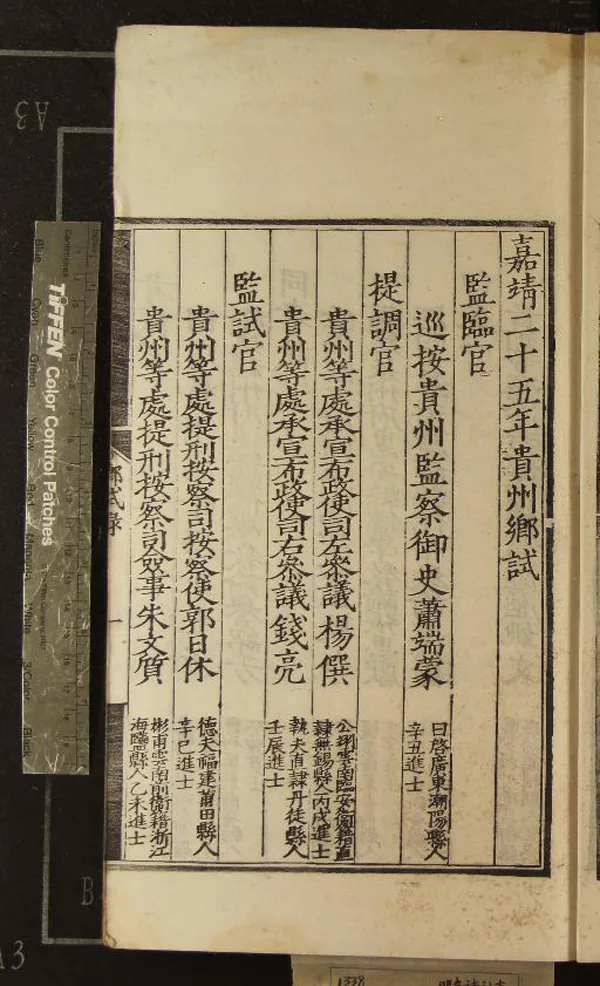 嘉靖二十五年貴州鄉試
監臨官
巡按貴州監察御史蕭端蒙
曰啓廣東潮陽縣人
辛丑進士
提調官
貴州等處承宣布政使司左叅議楊僎
公翊雲南臨安衞籍直
隸無錫縣人丙戌進士
貴州等處承宣布政使司右叅議錢亮
執夫直隸丹徒縣人
壬辰進士
監試官
貴州等處提刑按察司按察使郭日休
德夫福建莆田縣人
辛巳進士
貴州等處提刑按察司僉事朱文質
彬甫雲南前衞籍浙江
海鹽縣人乙未進士
鄉試錄
一
TIFFEN Color Control Patches
Blue
Cyan
Green
Yellow
Red
Magenta
White
3/Color
Black
Centimetres
Inches
A3
B
A3
1338